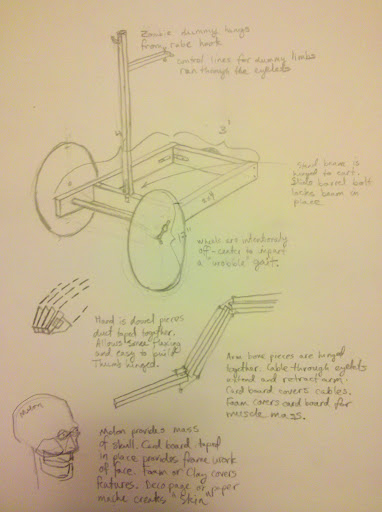 Zombie dummy hangs
from robe hook
control lines for dummy limbs
run through the eyelets
3'
4'
Stud brace is
hinged to cart.
Slide barrel bolt
locks beam in
place
2x4
12"
wheels are intentionally
off-center to impart
a "wobble" gait.
Hand is dowel pieces
duct taped together.
Allows some flexing
and easy to build
Thumb hinged.
Arm bone pieces are hinged
together. Cable through eyelets
extend and retract arm.
Card board covers cables.
Foam covers card board for
muscle mass.
Melon
Melon provides mass
of skull. Card board taped
in place provides frame work
of face. Foam or Clay covers
features. Decopage or paper
mache creates "skin"